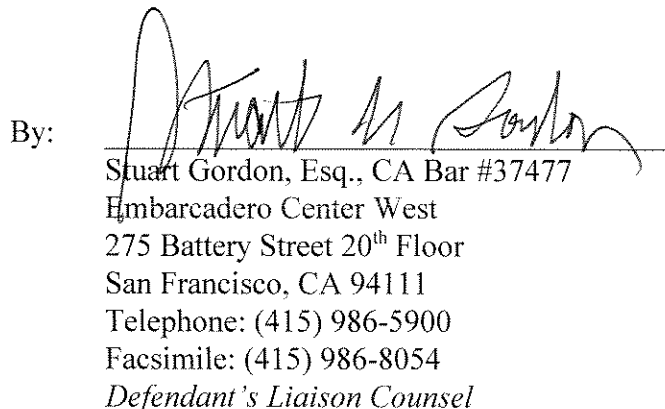 By: Stuart M Gordon
Stuart Gordon, Esq., CA Bar #37477
Embarcadero Center West
275 Battery Street 20th Floor
San Francisco, CA 94111
Telephone: (415) 986-5900
Facsimile: (415) 986-8054
Defendant's Liaison Counsel